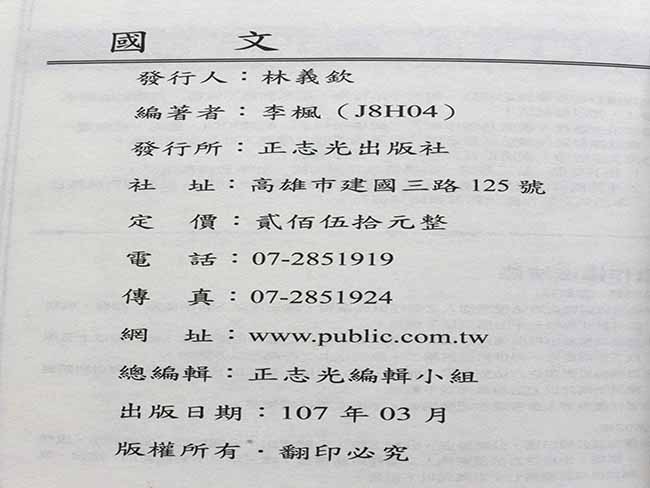 國 文
發行人：林義欽
編著者：李楓（J8H04）
發行所：正志光出版社
社 址：高雄市建國三路 125 號
定 價：貳佰伍拾元整
電 話：07-2851919
傳 真：07-2851924
網 址：www.public.com.tw
總編輯：正志光編輯小組
出版日期：107 年 03 月
版權所有．翻印必究